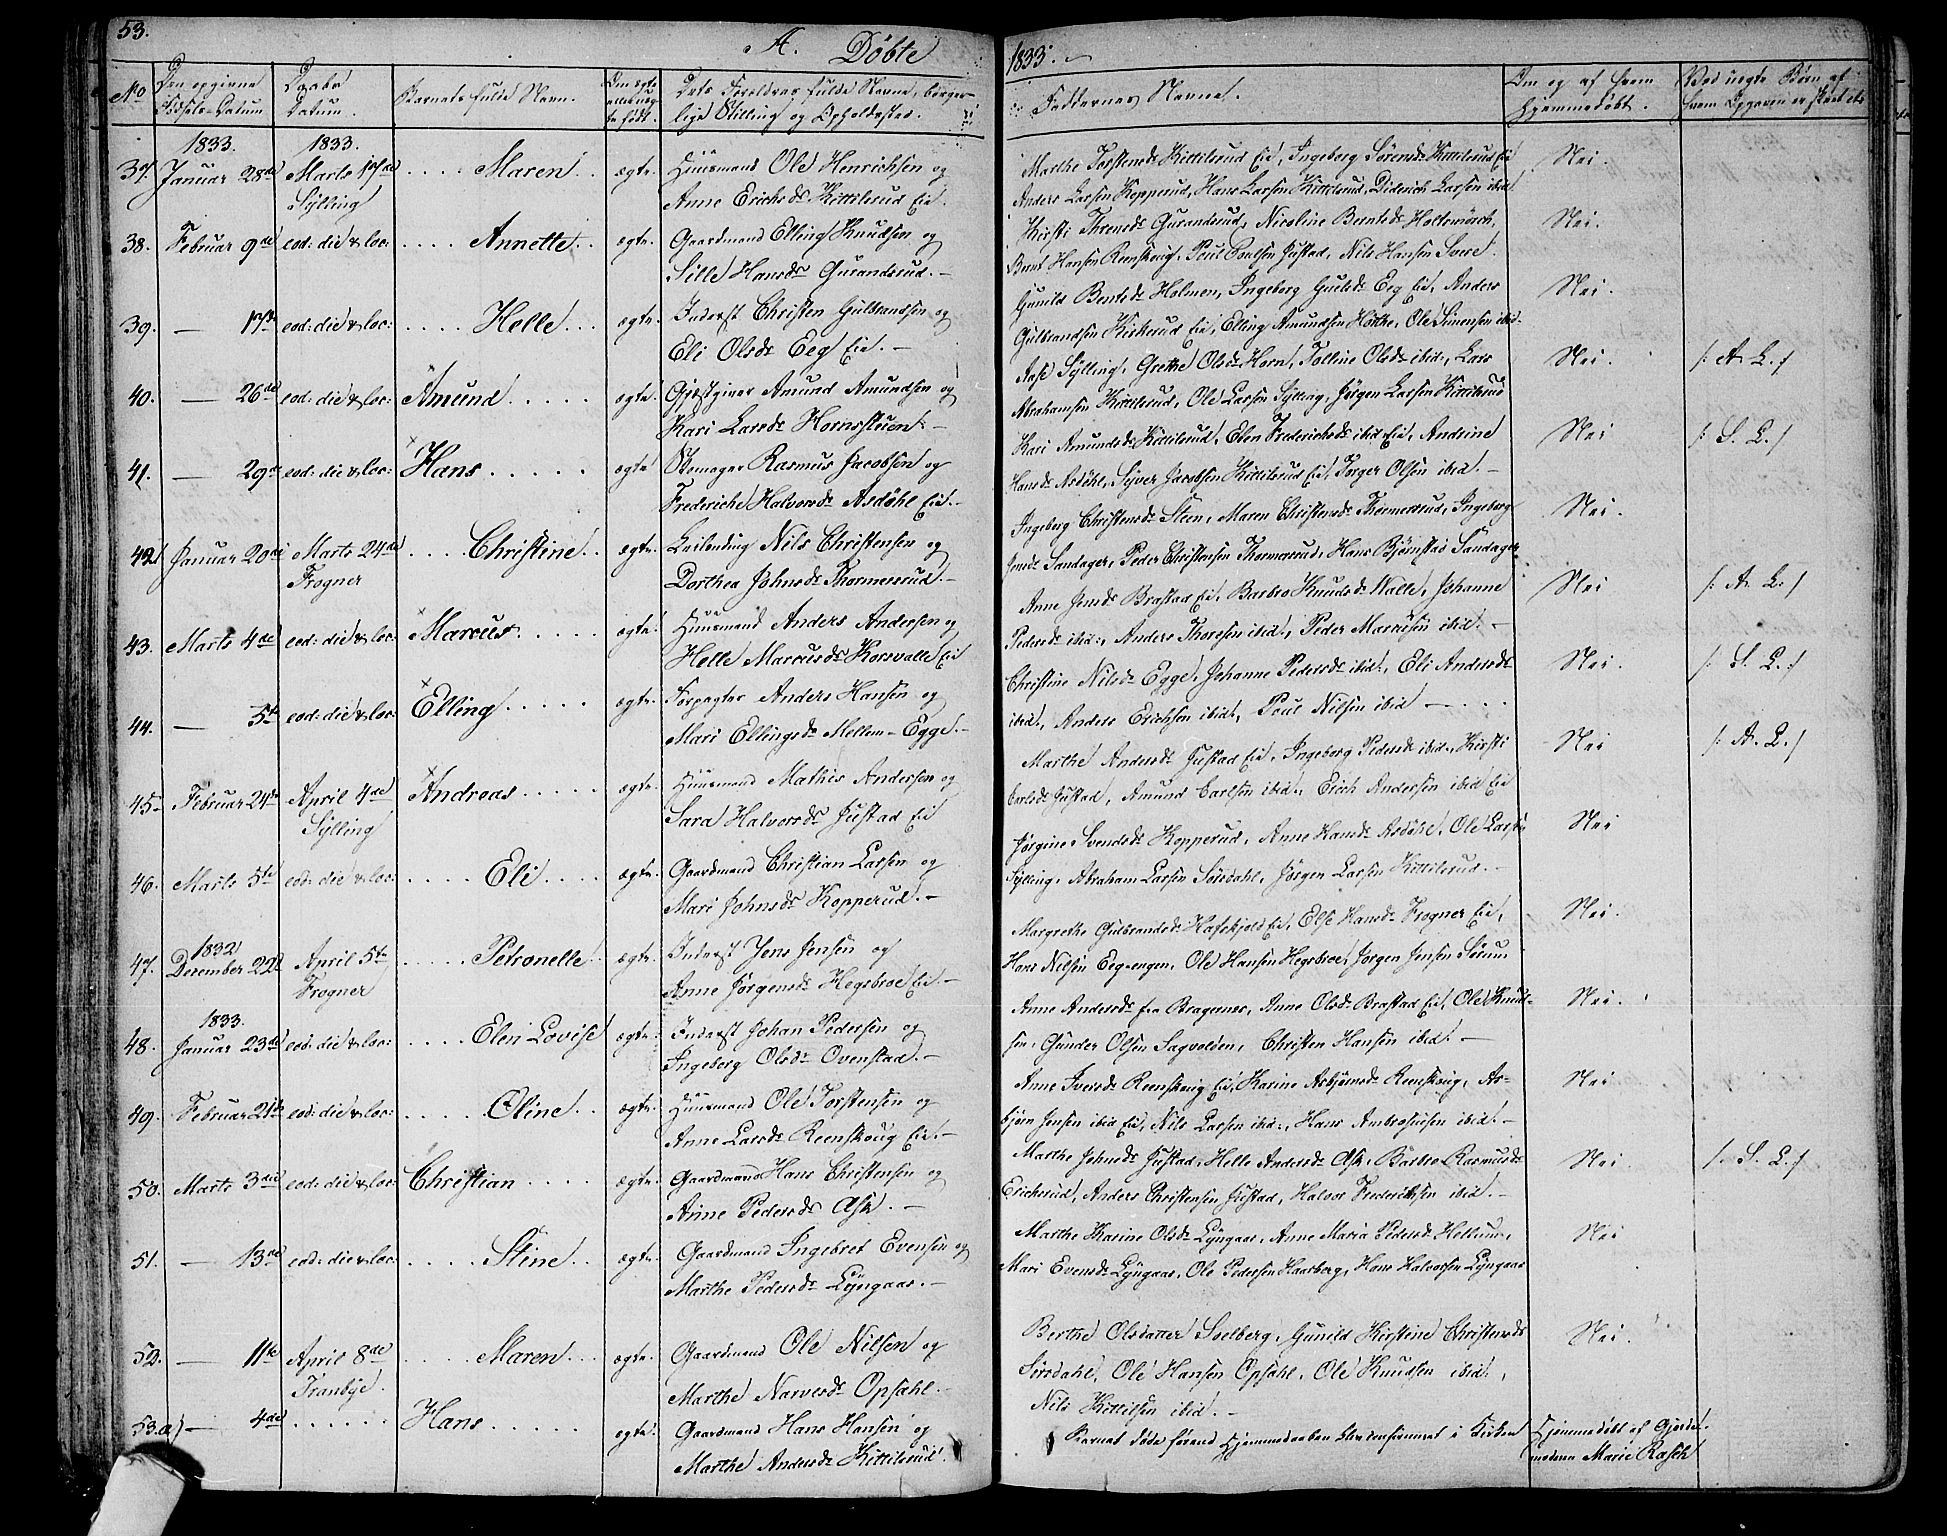 53.
A. Døbte
1833.
No
Den opgivne Fødsels-Datum
Daabs Datum.
Barnets fulde Navn.
Om ægte eller uægte født.
Dets Forældres fulde Navne, borgerlige Stilling og Opholdssted.
Faddernes Navne.
Om og af hvem hjemmedøbt.
Ved uægte Børn af hvem Opgaven er skeet etc
1833. 1833.
37. Januar 28de Marts 17de Sylling .... Maren .. ægte. Huusmand Ole Henrichsen og
Anne Erichsdr Kittilsrud Eie.
Marthe Torstensdr Kittilsrud Eie, Ingeborg Sørensdr Kittilsrud Eie
Anders Larsen Kopperud, Hans Larsen Kittilsrud, Diderich Larsen ibid.
Nei.
38. Februar 9de eod: die & loc: .... Annette .. ægte. Gaardmand Elling Knudsen og
Sille Hansdr Gurandsrud. —
Kirsti Thronsdr Gurandsrud, Nicoline Berntsdr Holtsmarch,
Bernt Hansen Reenskoug, Poul Poulsen Justad, Nils Hansen Svere.
Nei.
39. — 17de eod: die & loc: .... Helle ... ægte. Inderst Christen Gulbrandsen og
Eli Olsdr Eeg Eie. —
Gunild Bentsdr Holmen, Ingeborg Gulsdr Eeg Eie, Anders
Gulbrandsen Kiskerud Eie, Elling Amundsen Hotke, Ole Simensen ibid.
Nei.
40. — 26de eod: die & loc: Amund ..... ægte. Gjæstgiver Amund Amundsen og
Kari Larsdr Hornsstuen. —
Aase Sylling, Grethe Olsdr Horn, Tolline Olsdr ibid:, Lars
Abrahamsen Kittilsrud, Ole Larsen Sylling, Jørgen Larsen Kittilsrud
Nei /: A. L. :/
41. — 29de eod: die & loc: Hans ..... ægte Skomager Rasmus Jacobsen og
Frederiche Halvorsdr Asdøhl Eie. —
Kari Amundsdr Kittilsrud, Elen Frederichsdr ibid Eie, Andrine
Hansdr Asdøhl, Syver Jacobsen Kittilsrud Eie, Torger Olsen ibid. —
Nei /: S. L. :/
42. Januar 20de Marts 24de Frogner ... Christine .. ægte. Leilending Nils Christensen og
Dorthea Johnsdr Thormersrud. —
Ingeborg Christensdr Steen, Maren Christensdr Thormersrud, Ingeborg
Jensdr Sandager, Peder Christensen Thormersrud, Hans Bjørnstad Sandager
Nei.
43. Marts 4de eod: die & loc: Marcus ..... ægte. Huusmand Anders Andersen og
Helle Marcusdr Korsvalle Eie
Anne Jensdr Brastad Eie, Barbro Knudsdr Nalle, Johanne
Pedersdr ibid:, Anders Thoresen ibid:, Peder Marcusen ibid. —
Nei /: A. L. :/
44. — 5te eod: die & loc: Elling ..... ægte. Forpagter Anders Hansen og
Mari Ellingsdr Mellem-Egge. —
Christine Nilsdr Egge, Johanne Pedersdr ibid:, Eli Andersdr
ibid:, Anders Erichsen ibid:, Poul Nilsen ibid — ...
Nei. /: S. L. :/
45. Februar 24de April 4de Sylling Andreas ..... ægte. Huusmand Mathis Andersen og
Sara Halvorsdr Justad Eie
Marthe Andersdr Justad Eie, Ingeborg Pedersdr ibid., Kirsti
Carlsdr Justad, Amund Carlsen ibid:, Erich Andersen ibid Eie
Nei /: A. L. :/
46. Marts 5te eod: die & loc: .... Eli .... ægte. Gaardmand Christian Larsen og
Mari Johnsdr Kopperud. —
Jørgine Svendsdr Kopperud, Anne Hansdr Asdøhl, Ole Larsen
Sylling, Abraham Larsen Sørsdahl, Jørgen Larsen Kittilsrud. —
Nei
1832
47. December 22de April 5te Frogner .... Petronelle. ægte. Inderst Jens Jensen og
Anne Jørgensdr Hegsbroe Eie. —
Margrethe Gulbrandsdr Hafskjold Eie, Else Hansdr Frogner Eie,
Hans Nilsen Eeg-engen, Ole Hansen Hegsbroe, Jørgen Jensen Sørum
Nei.
1833.
48. Januar 23de eod: die & loc: .... Elen Lovise ægte. Inderst Johan Pedersen og
Ingeborg Olsdr Ovenstad. —
Anne Andersdr fra Bragernes, Anne Olsdr Brastad Eie, Ole Knud-
sen, Gunder Olsen Sagvolden, Christen Hansen ibid. —
Nei.
49. Februar 21de eod: die & loc: .... Oline .. ægte. Huusmand Ole Torstensen og
Anne Larsdr Reenskoug Eie. —
Anne Iversdr Reenskoug Eie, Karine Asbjørnsdr Reenskoug, As-
bjørn Jensen ibid Eie, Nils Larsen ibid:, Hans Ambrosiusen ibid. —
Nei
50. Marts 3die eod: die & loc: Christian .... ægte. Gaardmand Hans Christensen og
Anne Pedersdr Ask. —
Marthe Johnsdr Justad, Helle Andersdr Ask, Barbro Rasmusdr
Erichsrud, Anders Christensen Justad, Halvor Frederichsen ibid. —
Nei. /: S. L. :/
51. — 13de eod: die & loc: .... Stine .. ægte. Gaardmand Ingebret Evensen og
Marthe Pedersdr Lyngaas. —
Marthe Karine Olsdr Lyngaas, Anne Maria Pedersdr Hellum,
Mari Evensdr Lyngaas, Ole Pedersen Haarberg, Hans Halvorsen Lyngaas
Nei
52. — 11te April 8de Tranbye. .... Maren .. ægte. Gaardmand Ole Nilsen og
Marthe Narvesdr Opsahl. —
Berthe Olsdatter Solberg, Gunild Kirstine Christensdr
Sørsdahl, Ole Hansen Opsahl, Ole Knudsen ibid:,
Nils Kittilsen ibid. —
Nei.
53.a) — 4de ...... Hans ..... ægte. Gaardmand Hans Hansen og
Marthe Andersdr Kittilsrud.
Barnet døde forend Hjemmedaaben blev confirmeret i Kirken
Hjemmedøbt af Gjorde-
moderen Marie Rasch